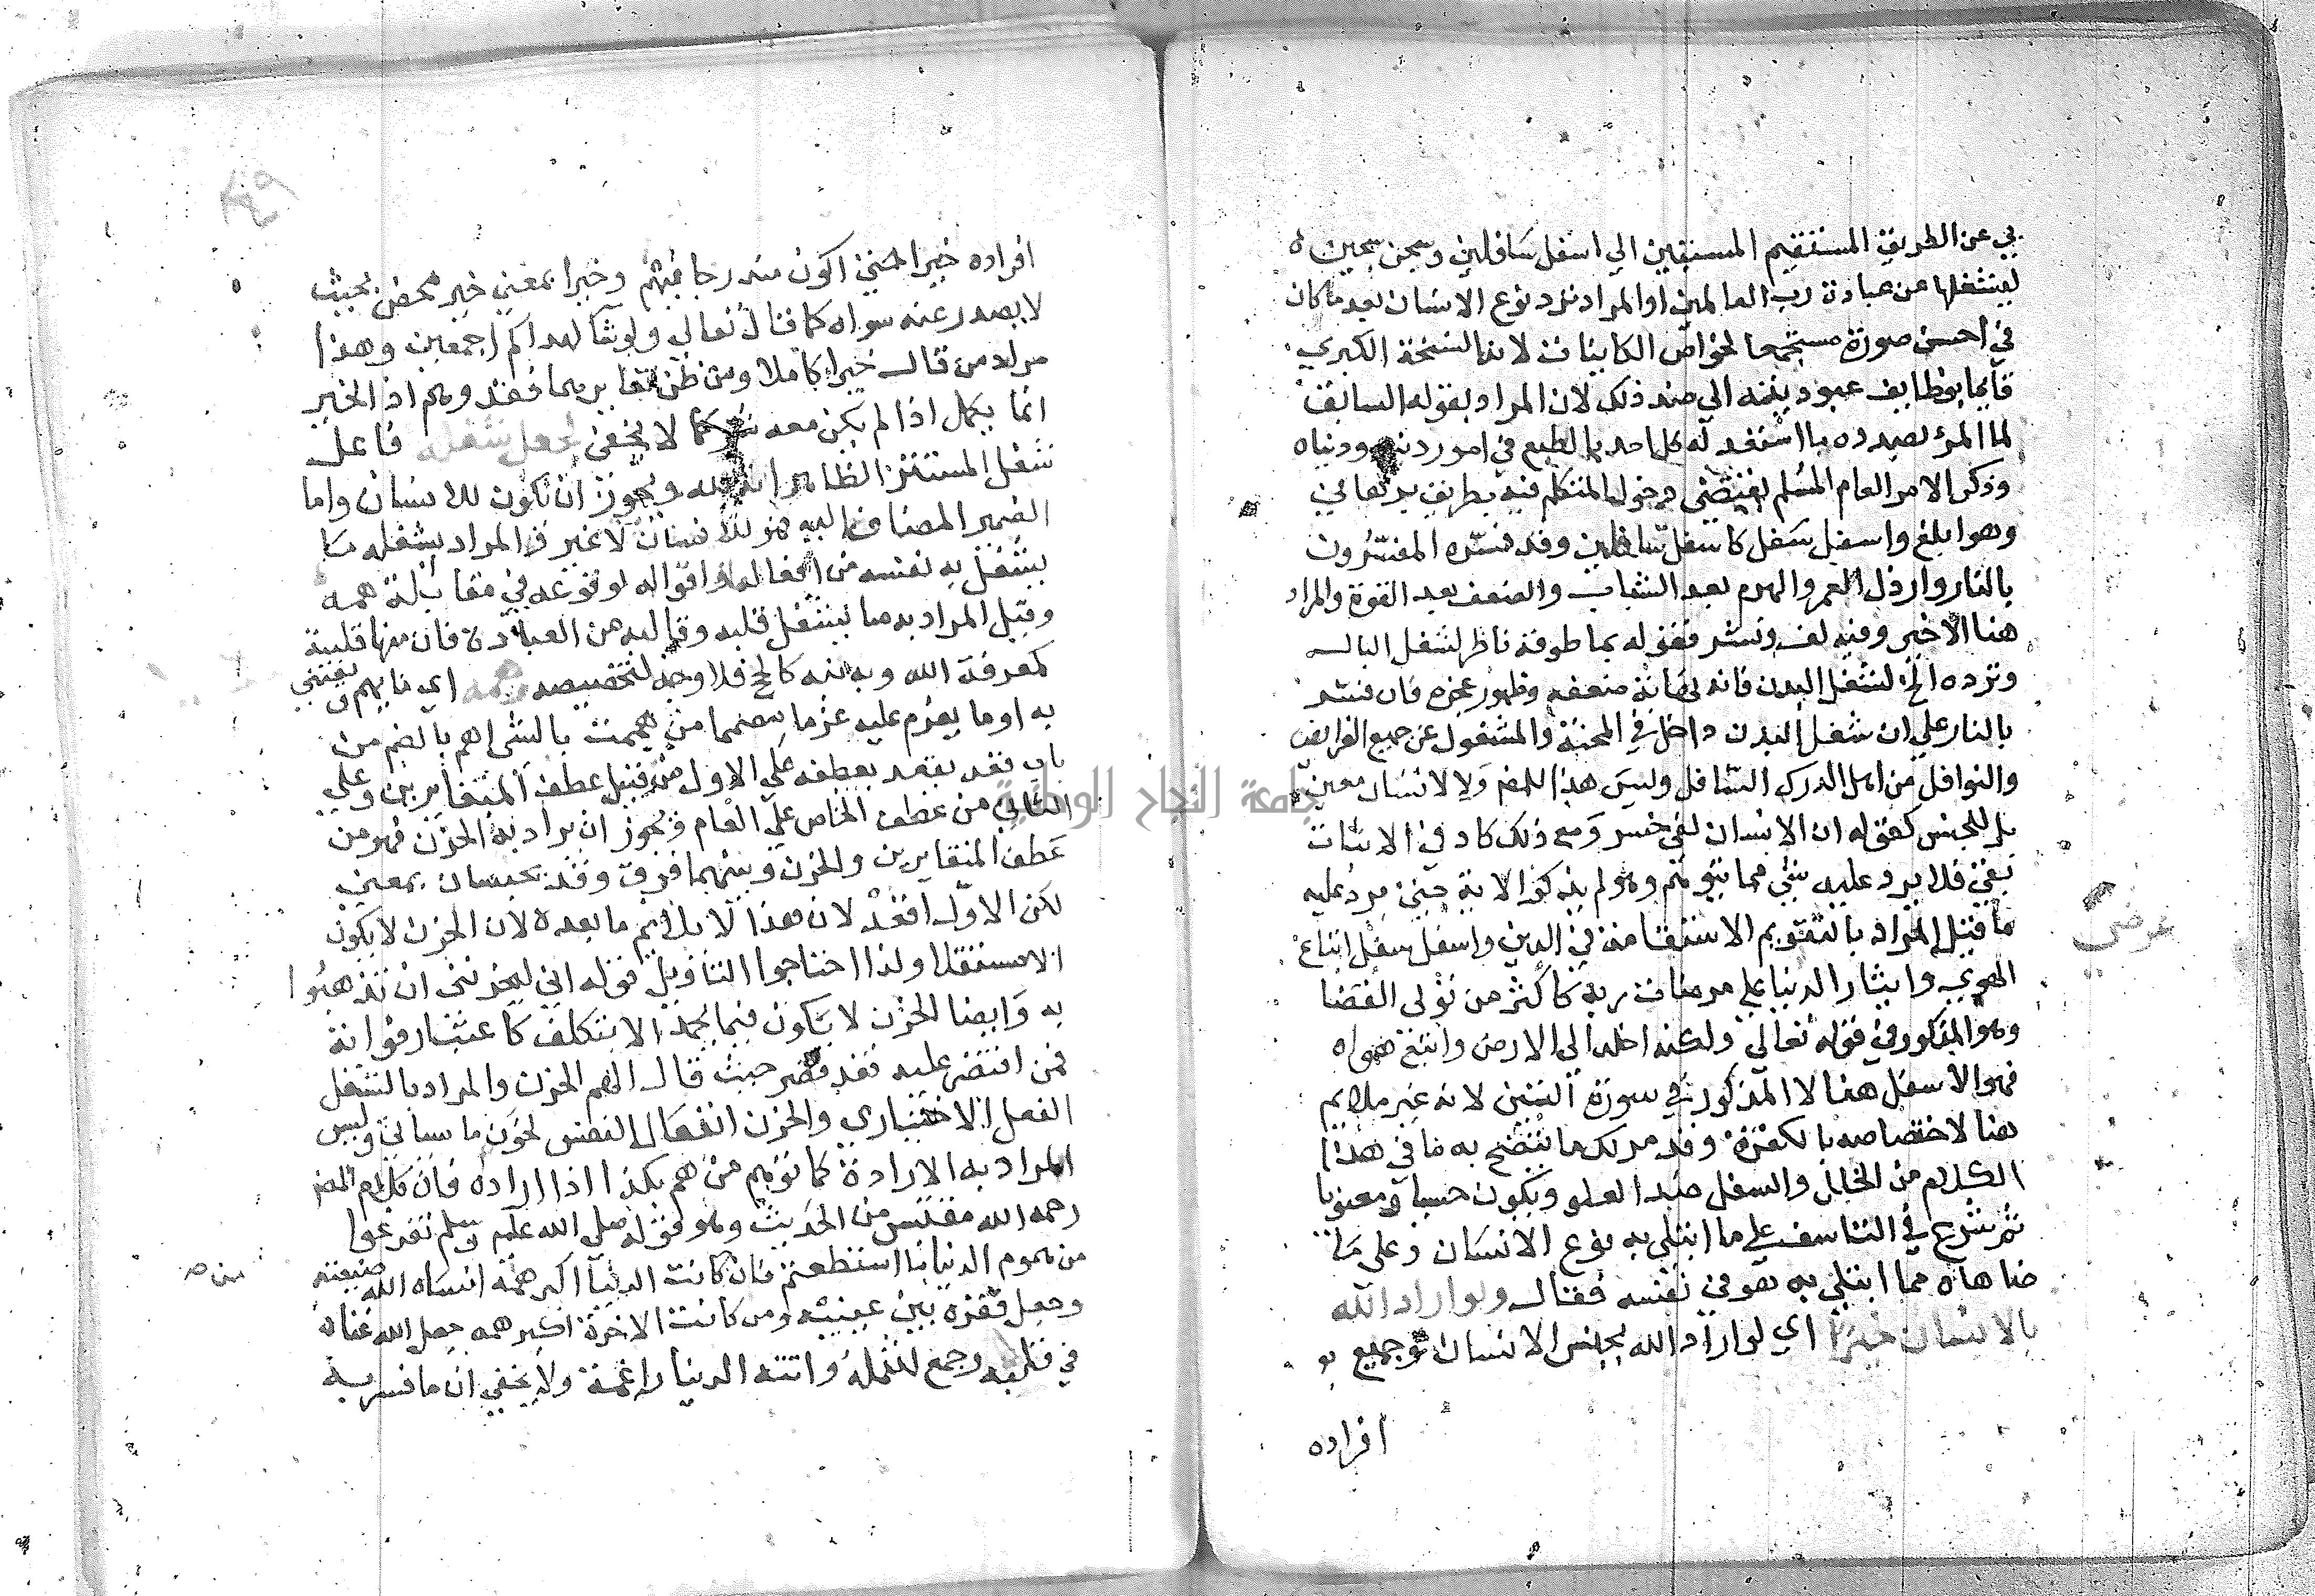 بي عن الطريق المستقيم المستبين الي اسفل سافلين وسجن سجين
ليشغلها عن عبادة رب العالمين او المراد نرد نوع الانسان بعد ما كان
في احسن صورة مستجمعا لخواص الكاينات لانه النسخة الكبري
قايما بوظايف عبوديته الي ضد ذلك لان المراد بقوله السابق
لما المرء بصدده ما استعد له كل احد بالطبع في امور دينه ودنياه
وذكر الامر العام المسلم ليقتضي دخول المتكلم فيه بطريق برهاني
وهو ابلغ واسفل سفل كاسفل سافلين وقد فسره المفسرون
بالنار وارذل العمر والهرم بعد الشباب والضعف بعد القوة والمراد
هنا الاخير وفيه لف ونشر فقوله بما طوقه ناظر لشغل البال
ونرده الخ لشغل البدن فانه لغاية ضعفه وظهور عجزه فان فسر
بالنار علي ان شغل البدن داخل في المحنة والمشغول عن جميع الفرايض
والنوافل من اهل الدرك السافل وليس هذا للهم ولا لانسان معين
بل للجنس كقوله ان الانسان لفي خسر ومع ذلك كاد في الاثبات
نفي فلا يرد عليه شي مما يتوهم وهو لم يذكر الاية حتي يرد عليه
ما قيل المراد بالتقويم الاستقامة في الدين واسفل سفل اتباع
الهوي وايثار الدنيا علي مرضات ربه كاكثر من تولي القضا
وهو المذكور في قوله تعالي ولكنه اخلد الي الارض واتبع هواه
فهو الاسفل هنا لا المذكور في سورة التين لانه غير ملايم
هنا لاختصاصه بالكفرة وقد مر لك ما يتضح به ما في هذا
الكلام من الخلل والسفل ضد العلو ويكون حسيا ومعنويا
ثم شرع في التاسف علي ما ابتلي به نوع الانسان وعلي ما
ضاهاه مما ابتلي به هو في نفسه فقال ولو اراد الله
بالانسان خيرا اي لو اراد الله بجنس الانسان وجميع
افراده
عرضي
افراده خيرا حتي اكون مندرجا فيهم وخيرا بمعني خير محض بحيث
لا يصدر عنه سواه كما قال تعالي ولو شا لهداكم اجمعين وهذا
مراد من قال خيرا كاملا ومن ظن تغايرهما فقد وهم اذ الخير
انما يكمل اذا لم يكن معه شر كما لا يخفي لجعل شغله فاعل
شغل المستتر الظاهر انه لله ويجوز ان تكون للانسان واما
الضمير المضاف اليه فهو للانسان لا غير والمراد بشغله ما
يشغل به نفسه من افعاله واقواله لوقوعه في مقابلة همه
وقيل المراد به ما يشغل قلبه وقالبه من العبادة فان منها قلبية
كمعرفة الله وبدنية كالحج فلا وجه لتخصيصه وهمه اي ما يهم ويعتني
به او ما يعزم عليه عزما مصمما من هممت بالشي اهم بالضم من
باب قعد يقعد بعطفه علي الاول من قبيل عطف المتغايرين وعلي
الثاني من عطف الخاص علي العام ويجوز ان يراد به الحزن فهو من
عطف المتغايرين والحزن وبينهما فرق وقد يجيان بمعني
لكن الاول اقعد لان هذا لا يلايم ما بعده لان الحزن لا يكون
الا مستقلا ولذا احتاجوا التاويل قوله اني ليحزنني ان تذهبوا
به وايضا الحزن لا يكون فيما يحمد الا بتكلف كاعتبار فواته
فمن اقتصر عليه فقد قصر حيث قال الهم الحزن والمراد بالشغل
الفعل الاختياري والحزن انفعال النفس لحزن ما سياتي وليس
المراد به الارادة كما توهم من هم بكذا اذا اراده فان كلام المص
رحمه الله مقتبس من الحديث وهو قوله صلي الله عليه وسلم تفرغوا
من هموم الدنيا ما استطعتم فان كانت الدنيا اكبر همه انساه الله ضيعته
وجعل فقره بين عينيه ومن كانت الاخرة اكبر همه جعل الله غناه
في قلبه وجمع له شمله واتته الدنيا راغمة ولا يخفي ان ما فسر به
جامعة النجاح الوطنية